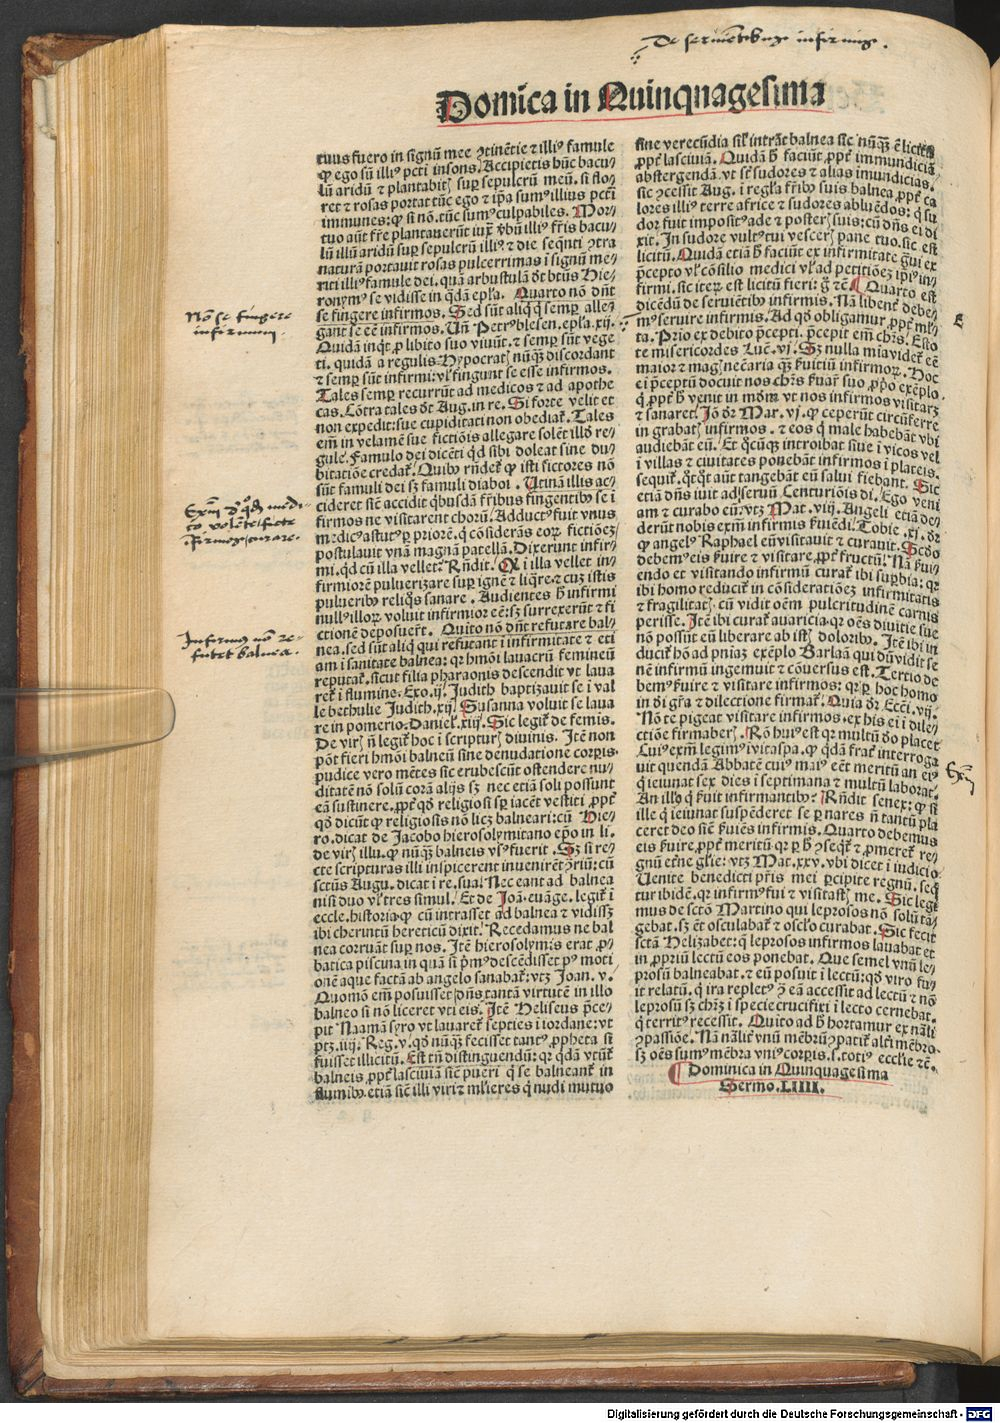 De seruientibus infirmis.
Domĩca in Quinquagesima
tuus fuero in signũ mee ↄtinẽtie ⁊ illiꝰ famule
ꝙ ego sũ illiꝰ pcti insons. Accipietis hũc bacu/
lũ aridũ ⁊ plantabitꝭ suꝑ sepulcrũ meũ. si flo/
ret ⁊ rosas portat tũc ego ⁊ ip̃a sumꝰ illius pcti
immunes: ꝙ si nõ. tũc sumꝰ culpabiles. Mor/
tuo aũt fr̃e plantauerũt iuxͭ vbũ illiꝰ fr̃is bacu/
lũ illũ aridũ suꝑ sepulcrũ illiꝰ ⁊ die seq̃nti ↄtra
naturã portauit rosas pulcerrimas ĩ signũ me/
riti illiꝰ famule dei. quã arbustulã dt̃ btũs Hie/
ronymꝰ se vidisse in q̃dã epl̃a. Quarto nõ dñt
se fingere infirmos. Sed sũt aliq̃ q̃ semꝑ alle/
gant se eẽ infirmos. Uñ Petrꝰ blesen. epl̃a. xij.
Quidã inq̃t ꝑ libito suo viuũt. ⁊ semꝑ sũt vege
ti. quidã a regulis Hypocratꝭ nũq̃ꝫ discordant
⁊ semꝑ sũt infirmi: vl̃ fingunt se esse infirmos.
Tales semꝑ recurrũt ad medicos ⁊ ad apothe
cas. Cõtra tales dt̃ Aug. in re. Si forte velit et
non expedit: sue cupiditati non obediat᷑. Tales
em̃ in velamẽ sue fictiõis allegare solẽt illđ re/
gule. Famulo dei dicẽti qđ sibi doleat sine du/
bitatiõe credat᷑. Quibꝰ rñdet᷑ ꝙ isti fictores nõ
sũt famuli dei sꝫ famuli diaboi. Utinã illis ac/
cideret sic̃ accidit q̃busdã fr̃ibus fingentibꝰ se ĩ
firmos ne visitarent chorũ. Adductꝰ fuit vnus
medicꝰ astutꝰ ꝑ priorẽ. q̃ cõsiderãs eoꝝ fictiõeꝫ
postulauit vnã magnã patellã. Dixerunt infir/
mi. qđ cũ illa vellet? Rñdit. Qđ i illa vellet in/
firmiorẽ puluerizare suꝑ ignẽ ⁊ liq̃re. ⁊ cuꝫ istis
pulueribꝰ reliq̃s sanare. Audientes h̃ infirmi
nullꝰ illoꝝ voluit infirmior eẽ: sꝫ surrexerũt ⁊ fi
ctionẽ deposuer̃t. Quito nõ dñt refutare bal/
nea. sed sũt aliq̃ qui refutant ĩ infirmitate ⁊ eti
am ĩ sanitate balnea: qꝛ hmõi lauacrũ femineũ
reputat᷑. sicut filia pharaonis descendit vt laua
ret᷑ ĩ flumine. Exo. ij. Judith baptizauit se i val
le bethulie Judith. xij. Susanna voluit se laua
re in pomerio. Daniel᷑. xiij. Sic legit᷑ de femis.
De virꝭ ñ legit᷑ hoc ĩ scripturꝭ diuinis. Itẽ non
põt fieri hmõi balneũ sine denudatione corꝑis.
pudice vero mẽtes sic erubescũt ostendere nu/
ditatẽ nõ solũ corã alijs sꝫ nec etiã soli possunt
eã sustinere. ꝓpt̃ qđ religiosi sꝑ iacẽt vestiti ꝓpt̃
qđ dicũt ꝙ religiosis nõ licꝫ balneari: cũ Hie/
ro. dicat de Jacobo hierosolymitano ep̃o in li.
de virꝭ illu. ꝙ nũq̃ꝫ balneis vsꝰ fuerit. Sꝫ si re/
cte scripturas illi inspicerent inuenirẽt ↄ̃riũ: cũ
sctũs Augu. dicat ĩ re. sua. Nec eant ad balnea
nisi duo vl̃ tres simul. Et de Joã. euãge. legit᷑ ĩ
eccle. historia. ꝙ cũ intrasset ad balnea ⁊ vidissꝫ
ibi cherintũ hereticũ dixit. Recedamus ne bal
nea corruãt suꝑ nos. Itẽ hierosolymis erat ꝓ/
batica piscina in quã si p̃mꝰ descẽdisset pꝰ moti
onẽ aque factã ab angelo sanabat᷑: vtꝫ Joan. v.
Quomõ em̃ posuisset dñs tantã virtutẽ in illo
balneo si nõ liceret vti eis. Itẽ Heliseus p̃ce/
pit Naamã syro vt lauaret᷑ septies ĩ iordane: vt
ptꝫ. iiij. Reg. v. qđ nũq̃ꝫ fecisset tantꝰ ꝓpheta si
fuisset illicitũ. Est tñ distinguendũ: qꝛ q̃dã vtũt᷑
balneis ꝓpt̃ lasciuiã sic̃ pueri q̃ se balneant᷑ in
flumibꝰ. etiã sic̃ illi viri ⁊ ml̃ieres q̃ nudi mutuo
sine verecũdia sil᷑ intrãt balnea sic nũq̃ꝫ ẽ licitũ
ꝓpt̃ lasciuiã. Quidã h̃ faciũt ꝓpt̃ immundiciã
abstergendã. vt sc̃ sudores ⁊ alias imundicias.
sic ↄcessit Aug. ĩ regl̃a fr̃ibꝰ suis balnea ꝓpt̃ ca
lores illiꝰ terre africe ⁊ sudores abluẽdos: q̃ su
dor fuit impositꝰ ade ⁊ posterꝭ suis: cũ dñs ei di
xit. In sudore vultꝰ tui vescerꝭ pane tuo. sic est
licitũ. Quidã etiã h̃ faciũt ex infirmitate g̃ui ex
p̃cepto vl̃ cõsilio medici vl̃ ad petitiõeꝫ ip̃iꝰ in/
firmi. sic iteꝝ est licitũ fieri: g̃ ⁊c̃. Quarto est
dicẽdũ de seruiẽtibꝰ infirmis. Nã libent᷑ debe/
mꝰ seruire infirmis. Ad qđ obligamur ꝓpt̃ ml̃/
ta. Prĩo ex debito p̃cepti. p̃cepit em̃ chr̃s. Esto
te misericordes Luc̃. vj. Sꝫ nulla mi̅a videt᷑ eẽ
maior ⁊ mag̃ necẽaria q̃ꝫ f̃uitiũ infirmoꝝ. Hoc
ei p̃ceptũ docuit nos chr̃s f̃uar̃ suo ꝓp̃o exẽplo.
q̃ ꝓpt̃ h̃ venit in mõm vt nos infirmos visitarꝫ
⁊ sanaret. Jõ dr̃ Mar. vj. ꝙ ceperũt circũferre
in grabatꝭ infirmos. ⁊ eos q̃ male habebãt vbi
audiebãt eũ. Et q̃cũqꝫ introibat siue ĩ vicos vel
ĩ villas ⁊ ciuitates ponebãt infirmos ĩ plateis.
sequit᷑. q̃tq̃t aũt tangebãt eũ salui fiebant. Sic
etiã dñs iuit ad seruũ Centuriõis di. Ego veni
am ⁊ curabo eũ: vtꝫ Mat. viij. Angeli etiã de/
derũt nobis exm̃ infirmis f̃uiẽdi. Tobie. xj. dr̃
ꝙ angelꝰ Raphael eũ visitauit ⁊ curauit. Scđo
debemꝰ eis f̃uire ⁊ visitare. ꝓpt̃ fructũ. Nã f̃ui/
endo et visitando infirmũ curat᷑ ibi suꝑbia: qꝛ
ibi homo reducit᷑ in cõsideratiõeꝫ infirmitatis
⁊ fragilitatꝭ. cũ vidit oẽm pulcritudinẽ carnis
perisse. Itẽ ibi curat᷑ auaricia. qꝛ oẽs diuitie sue
nõ possũt eũ liberare ab istꝭ doloribꝰ. Itẽ ibi in
ducit᷑ hõ ad pniaꝫ exẽplo Barlaã qui dũ vidit se
nẽ infirmũ ingemuit ⁊ cõuersus est. Tertio de
bemꝰ f̃uire ⁊ visitare infirmos: qꝛ ꝑ hoc homo
in di gr̃a ⁊ dilectione firmat᷑. Quia dr̃ Ecci. vij.
Nõ te pigeat visitare infirmos. ex his ei ĩ dile/
ctiõe firmaberꝭ. Rõ huiꝰ est qꝛ multũ do placet
Cuiꝰ exm̃ legimꝰ ĩ vitaspa. ꝙ q̃dã frat᷑ interroga
uit quendã Abbatẽ cuiꝰ maiꝰ eẽt meritũ an eiꝰ
q̃ ieiunat sex dies ĩ septimana ⁊ multũ laborat.
An illꝰ q̃ f̃uit infirmantibꝰ? Rñdit senex: ꝙ si
ille q̃ ieiunat suspẽderet se ꝑ nares ñ tantũ pla
ceret deo sic̃ f̃uiẽs infirmis. Quarto debemus
eis f̃uire. ꝓpt̃ meritũ qꝛ ꝑ h̃ ↄseq̃t᷑ ⁊ ꝓmeret᷑ re/
gnũ et̃ne gl̃ie: vtꝫ Mat. xxv. vbi dicet ĩ iudicio
Uenite benedicti pr̃is mei ꝑcipite regnũ. seq̃
tur ibidẽ. qꝛ infirmꝰ fui ⁊ visitastꝭ me. Sic legi
mus de sctõ Martino qui leprosos nõ solũ ta/
gebat. sꝫ ẽt osculabat᷑ ⁊ oscl̃o curabat. Sic fecit
sctã Helizabet: q̃ leprosos infirmos lauabat et
in ꝓpriũ lectũ eos ponebat. Que semel vnũ le/
prosũ balneabat. ⁊ eũ posuit ĩ lectũ: qđ viro fu/
it relatũ. q̃ ira repletꝰ ↄ̃ eã accessit ad lectũ ⁊ nõ
leprosũ sꝫ chr̃ꝫ ĩ specie crucifixi ĩ lecto cernebat.
q̃ territꝰ recessit. Quito ad h̃ hortamur ex nãli
ↄpassiõe. Nã nãlit᷑ vnũ mẽbrũ ↄpatit᷑ alt̃i mẽbro.
sꝫ oẽs sumꝰ mẽbra vniꝰ corꝑis. s. totiꝰ eccl̃ie ⁊c̃.
Dominica in Quinquagesima
Sermo. LIIII.
Nõ se fingere
infirmum.
Exm̃ medi-
co volẽte ficte
infirmos curare.
Infirmus nõ re-
futet balnea.
Exm̃
Digitalisierung gefördert durch die Deutsche Forschungsgemeinschaft - DFG